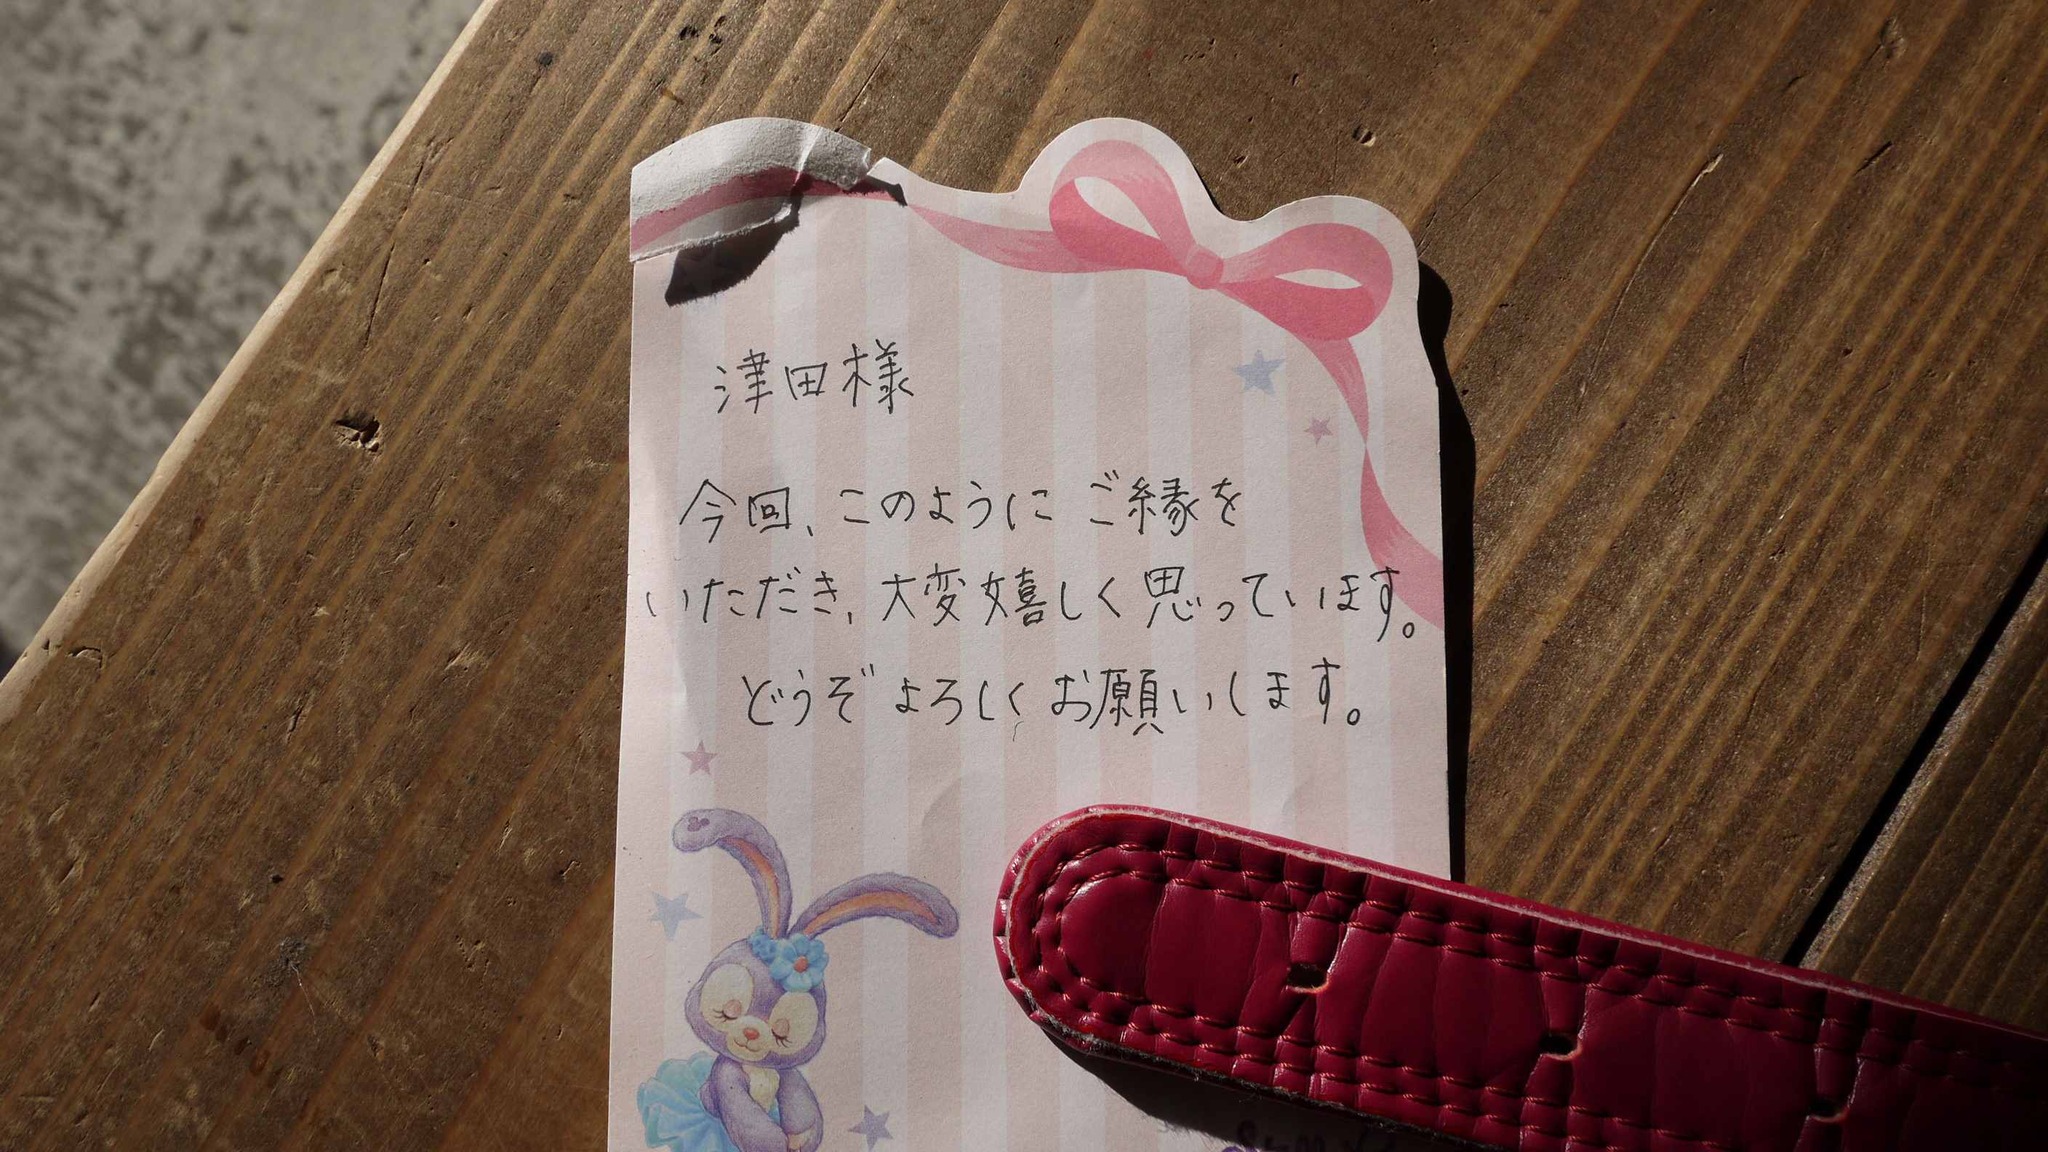 津田様
今回、このように ご縁を
いただき、大変嬉しく思っています。
どうぞ よろしく お願いします。